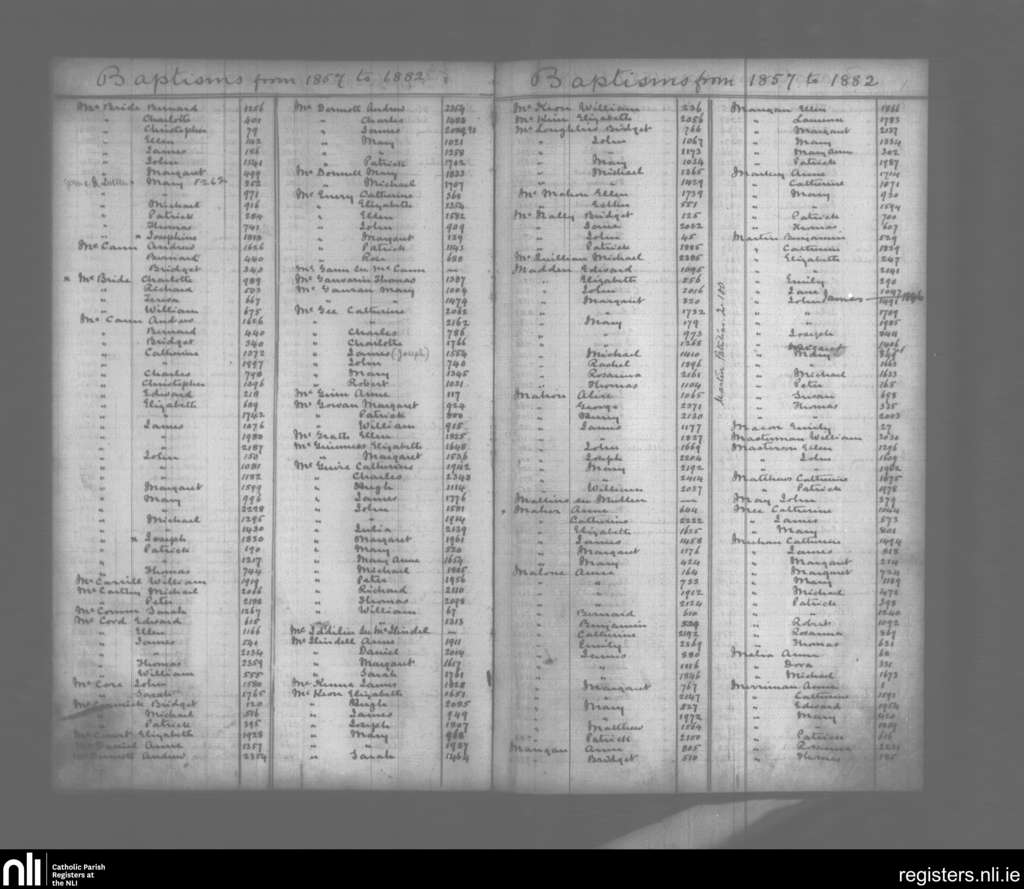 Baptisms from 1857 to 1882
McBride Bernard
" Charlotte 401
" Christopher 79
" Ellen
" James
" John 1341
" Margaret 499
" Mary 5262
" " 971
" Michael 916
" Patrick 284
" Thomas 741
" Josephine
McCann Andrew 1626
Bernard 440
Bridget 340
x McBride Charlotte 989
" Richard
" Teresa 667
" William 675
McCann Andrew 1626
" Bernard 440
" Bridget 340
" Catherine 1072
" " 1897
" Charles 798
" Christopher 1296
" Edward 218
" Elizabeth 609
" " 1742
" James 1076
" " 1980
" " 2187
" John 150
" " 1081
" " 1182
" Margaret 1599
" Mary 996
" " 2228
" Michael 1295
" " 1430
" x Joseph 1830
" Patrick 190
" " 1217
" Thomas 744
McCarrill William 1919
McCarthy Michael 2066
" Peter
McComm Sarah 1267
McCord Edward 615
" Ellen 1166
" James
" " 2134
" Thomas 2359
" William 555
McCore John 1580
" Sarah 1765
McCormick Bridget 120
" Michael 516
" Patrick 395
McCourt Elizabeth 1928
McDaniel Anne 1357
McDermott Andrew 2354
McDermott Andrew 2354
" Charles
" James
" Mary 1021
" " 1358
" Patrick 1702
McDonnell Mary 1833
" Michael 1707
McEnery Catherine 362
" Elizabeth 1354
" Ellen 1582
" John 909
" Margaret 129
" Patrick 1143
" Rose 620
McGann see McCann —
McGauvarin Thomas 1387
McGauran Mary 1004
" " 1474
McGee Catherine 2062
" " 2162
" Charles 786
" Charlotte 1766
" James (Joseph) 1554
" John 740
" Mary 1345
" Robert 1031
McGinn Anne 117
McGowan Margaret 924
" Patrick 800
" William 915
McGrath Ellen 1825
McGuinness Elizabeth 1645
" Margaret 1536
McGuire Catherine 1942
" Charles 2343
" Hugh 1114
" James 1776
" John 1581
" " 1914
" Julia 2139
" Margaret 1961
" Mary 520
" Mary Anne 1654
" Michael
" Peter 1956
" Richard 2110
" Thomas 2098
" William 67
" " 1313
McIldilin See McGlindel —
McGlindell Anne 1911
" Daniel 2014
" Margaret 1617
" Sarah 1761
McKenna James 1828
McKeon Elizabeth 1651
" Hugh 2025
" James 949
" Joseph 1807
" Mary 968
" " 1927
" Sarah 1464
Baptisms from 1857 to 1882
McKeon William 236
McKeon Elizabeth 2056
McLoughlin Bridget 766
" John 1067
" " 2173
" Mary 1034
" Michael 1365
" " 1429
McMahon Ellen 1739
" Esther 551
McNally Bridget 125
" Jane 2022
" John 45
" Patrick
McQuillian Michael
Madden Edward 1095
" Elizabeth 256
" John 2016
" Margaret 820
" " 1732
" Mary 179
" " 973
" " 1255
" Michael 1410
" Rachel 1296
" Rosanna 2165
" Thomas 1104
Mahon Alice 1065
" George 2371
" Henry 2120
" James 1177
" " 1827
" John 1669
" Joseph 2204
" Mary 2192
" " 2414
" William 2037
Mullins see Mullen —
x Maher Anne 604
" Catherine 2222
" Elizabeth 1625
" James 1458
" Margaret 1176
" Mary 424
Malone Anne 164
" " 722
" " 1912
" " 2124
" Bernard 610
" Benjamin 529
" Catherine 2192
" Emily 2369
" James 280
" " 1116
" " 1846
" Margaret 767
" " 2147
" Mary 527
" " 1972
" Matthew 1504
" Patrick 2100
Mangan Anne 805
" Bridget 510
Martin Patrick
Mangan Ellen 1866
" Laurence 1783
" Margaret 2137
" Mary 1334
" Mary Anne 302
" Patrick 1987
Markey Anne 1714
" Catherine 1871
" Mary 930
" " 1594
" Patrick 700
" Thomas 607
Martin Benjamin 529
" Catherine 1829
" Elizabeth 247
" " 2141
" Emily 290
" Jane 1097
" John James 1846
" " 1709
" " 1905
" Joseph
" Margaret
" Mary
" " 1163
" Michael 1633
" Peter 165
" Susan 692
" Thomas 325
" " 2003
Mason Emily 27
Masterman William 2030
Masterson Ellen 1296
" John 1609
" " 1902
Matthews Catherine 1875
" Patrick 1978
May John 279
Mee Catherine 1044
" James 573
" Mary 801
Meehan Catherine 1494
" James 818
" Margaret 214
" Margaret 724
" Mary 1189
" Michael 472
" Patrick 398
" " 1240
" Robert 1092
" Rosanna 269
" Thomas 631
Melia Anne 62
" Dora 331
" Michael 1673
Merriman Anne
" Catherine 1191
" Edward 1954
" Mary 420
" "
" Patrick 616
" Rosanna
" Thomas 185
nli
Catholic Parish
Registers at
the NLI
registers.nli.ie